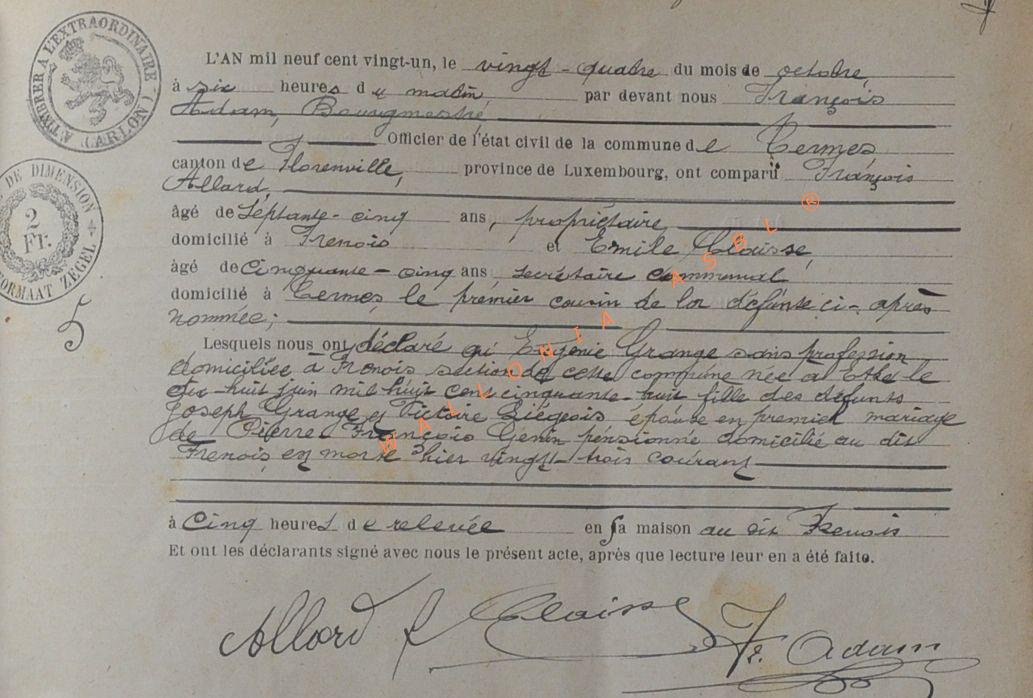 A TIMBRER A L'EXTRAORDINAIRE
(ARLON)
DE DIMENSION
2
Fr.
FORMAAT ZEGEL
5
L'AN mil neuf cent vingt-un, le vingt-quatre du mois de octobre,
à six heures du matin, par devant nous François
Adam, Bourgmestre
Officier de l'état civil de la commune de Termes
canton de Florenville, province de Luxembourg, ont comparu François
Allard,
âgé de Septante-cinq ans, propriétaire,
domicilié à Frenois et Emile Claisse,
âgé de Cinquante-cinq ans secrétaire communal
domicilié à Termes, le premier cousin de la défunte ci-après
nommée;
Lesquels nous ont déclaré qu'Eugénie Grange sans profession
domiciliée à Frenois section de cette commune née à Ethe le
dix-huit juin mil huit cent cinquante-huit fille des défunts
Joseph Grange et Victoire Liégeois épouse en premier mariage
de Pierre François Genin pensionné domicilié au dit
Frenois, en morte hier vingt-trois courant
à Cinq heures de relevée en sa maison au dit Frenois
Et ont les déclarants signé avec nous le présent acte, après que lecture leur en a été faite.
Allard f Claisse Fr. Adam
WALLONIA ASBL ®